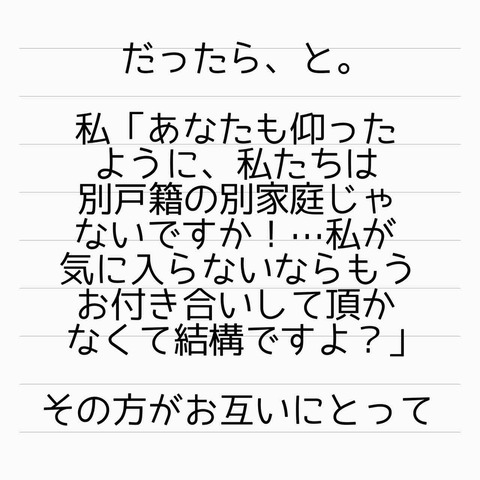 だったら、と。
私「あなたも仰った
ように、私たちは
別戸籍の別家庭じゃ
ないですか！…私が
気に入らないならもう
お付き合いして頂か
なくて結構ですよ？」
その方がお互いにとって